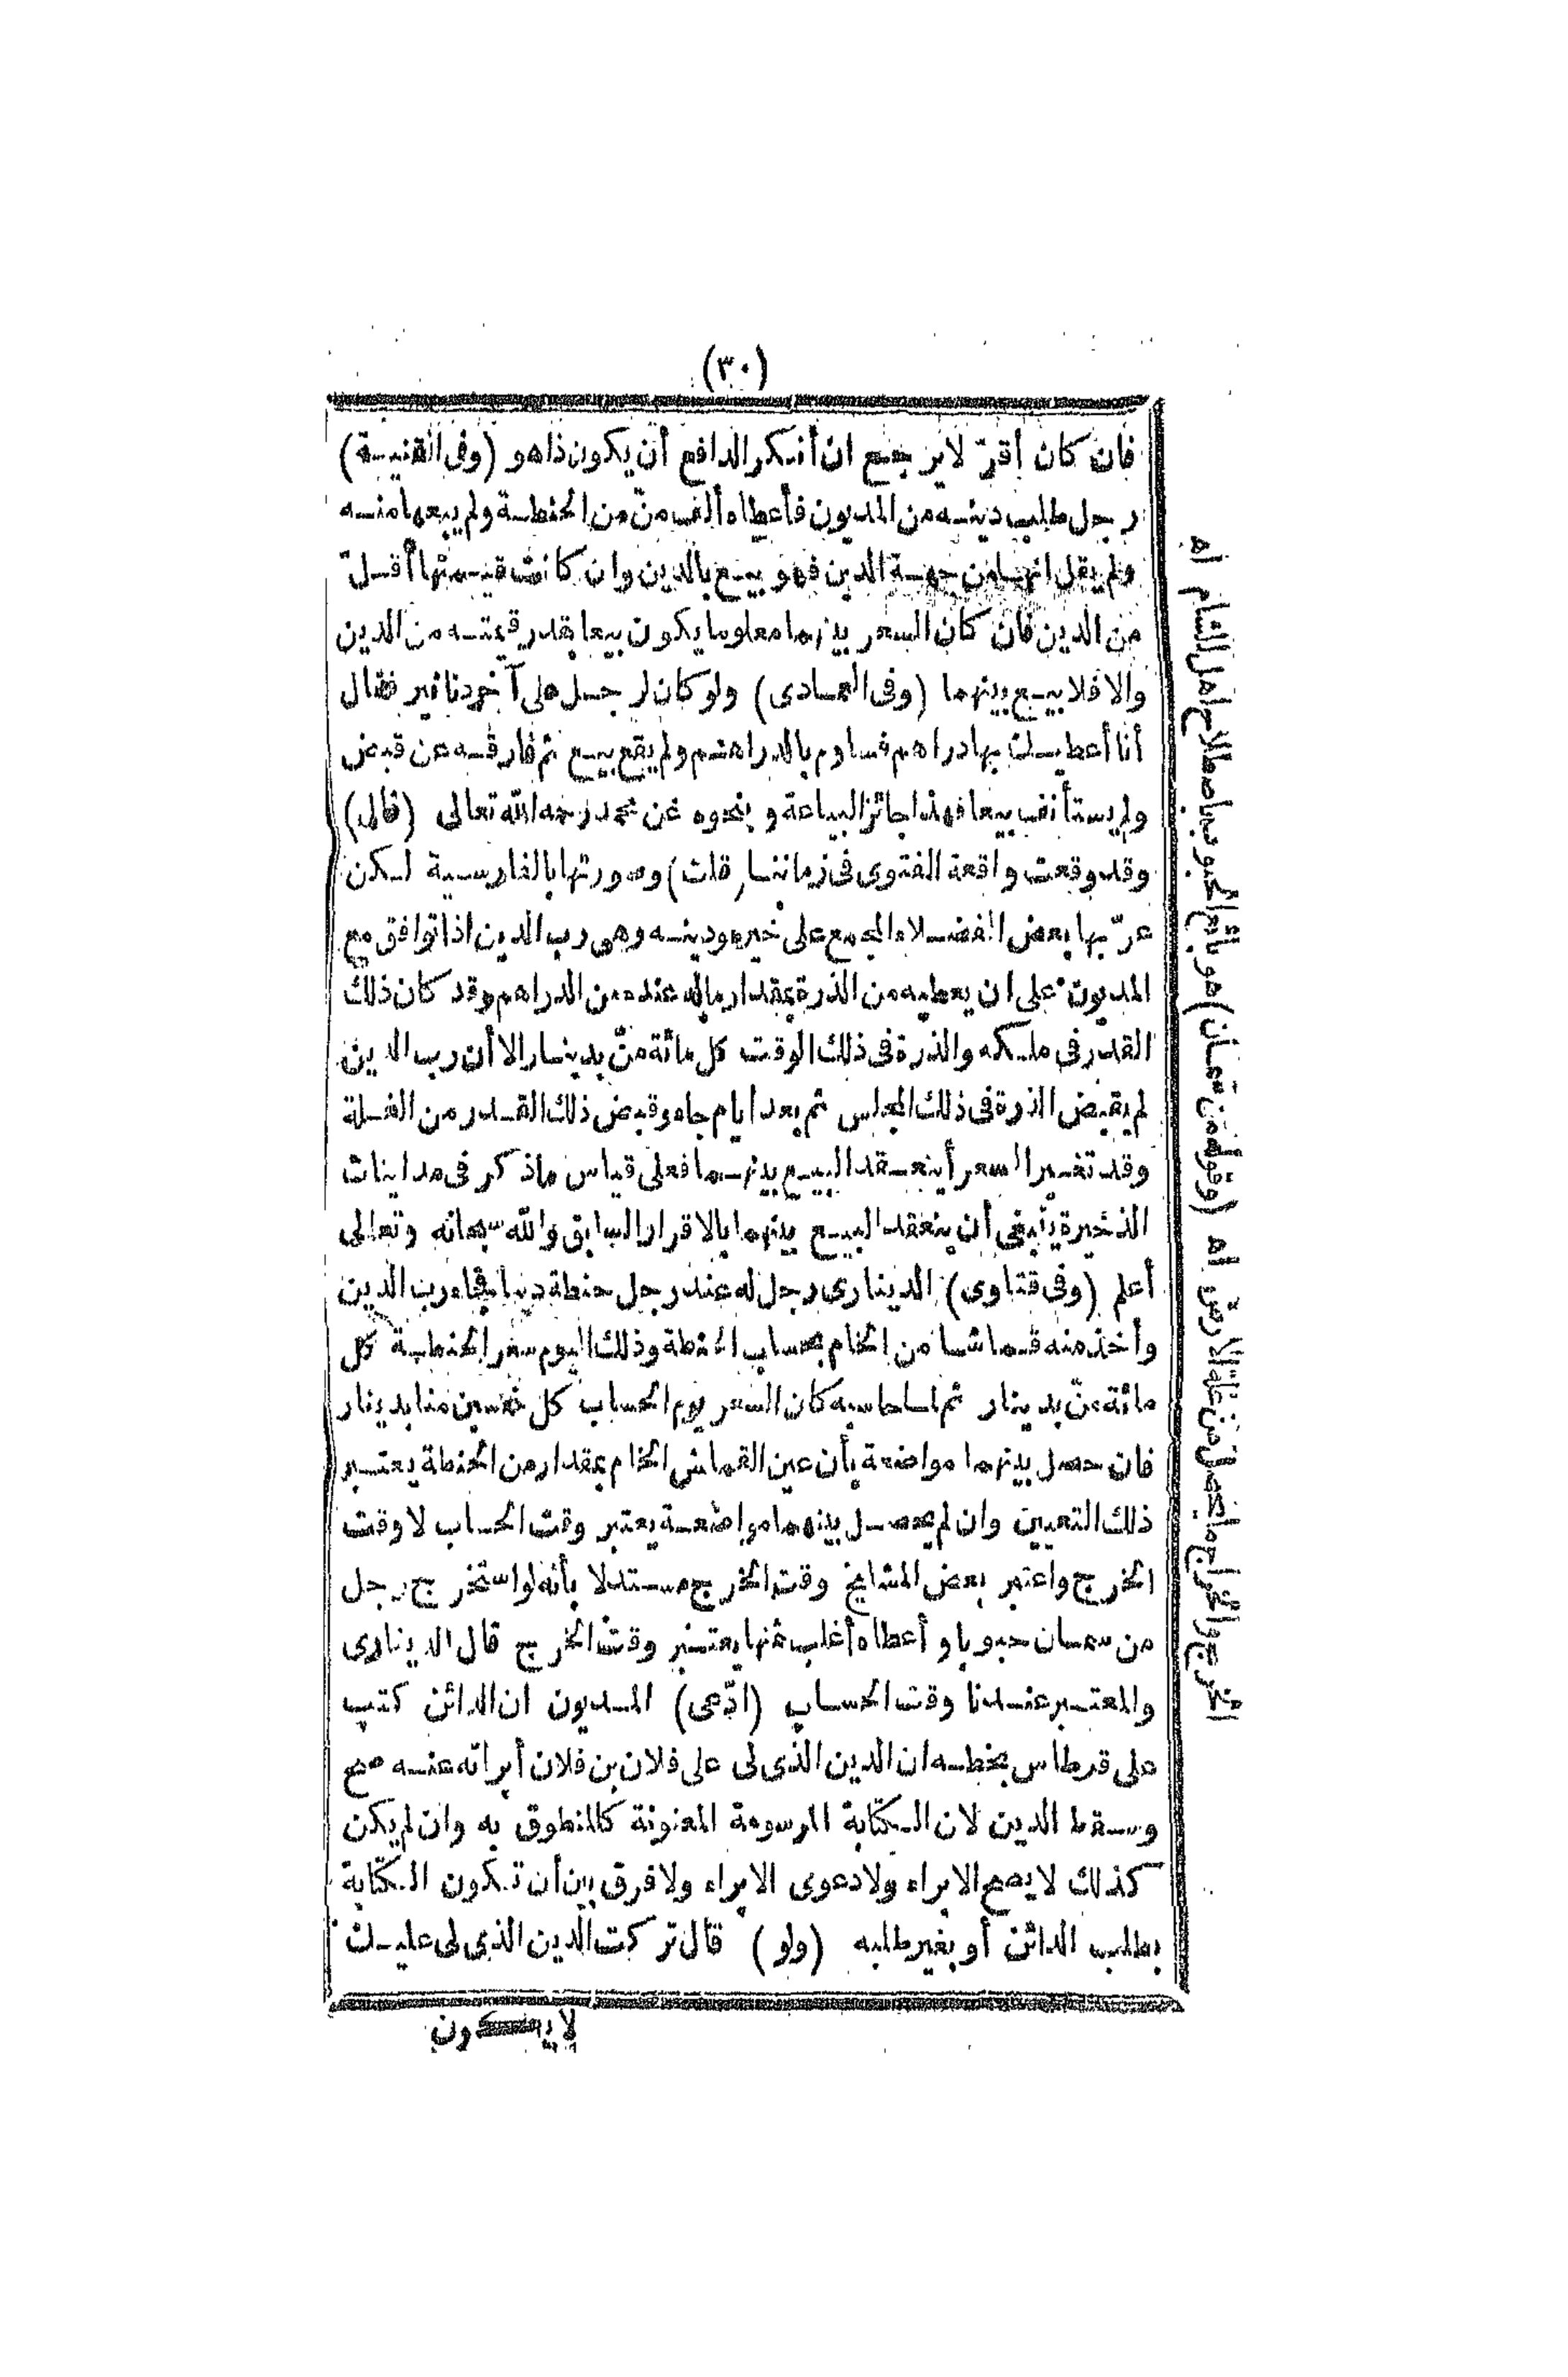 (٣٠)
فان كان أقرّ لا يرجع ان أنكر الدافع أن يكون ذا هو (وفى القنية)
رجل طلب دينه من المديون فأعطاه ألف منّ من الحنطة ولم يبعها منه
ولم يقل انها من جهة الدين فهو بيع بالدين وان كانت قيمتها أقلّ
من الدين فان كان السعر بينهما معلوما يكون بيعا بقدر قيمته من الدين
والا فلا بيع بينهما (وفى العمادى) ولو كان لرجل على آخر دنانير فقال
أنا أعطيك بها دراهم فساوم بالدراهم ولم يقع بيع ثم فارقه عن قبض
ولم يستأنف بيعا فهذا جائز الساعة وبنحوه عن محمد رحمه الله تعالى (قال)
وقد وقعت واقعة الفتوى فى زماننا (قلت) وصورتها بالفارسية لكن
عرّبها بعض الفضلاء المجمع على خيره ودينه وهى رب الدين اذا توافق مع
المديون على ان يعطيه من الذرة بمقدار ماله عنده من الدراهم وقد كان ذلك
القدر فى ملكه والذرة فى ذلك الوقت كل مائة منّ بدينار الا أن رب الدين
لم يقبض الذرة فى ذلك المجلس ثم بعد أيام جاء وقبض ذلك القدر من الغلة
وقد تغير السعر أينعقد البيع بينهما فعلى قياس ما ذكر فى مداينات
الذخيرة ينبغى أن ينعقد البيع بينهما بالاقرار السابق والله سبحانه وتعالى
أعلم (وفى فتاوى) الدينارى رجل له عند رجل حنطة دينا فجاء رب الدين
وأخذ منه قماشا من الخام بحساب الحنطة وذلك اليوم سعر الحنطة كل
مائة منّ بدينار ثم لما حاسبه كان السعر يوم الحساب كل خمسين منا بدينار
فان حصل بينهما مواضعة بأن عين القماش الخام بمقدار من الحنطة يعتبر
ذلك التعيين وان لم يحصل بينهما مواضعة يعتبر وقت الحساب لا وقت
الخرج واعتبر بعض المشايخ وقت الخرج مستدلا بأنه لو استخرج رجل
من سمسان حبوبا وأعطاه أغلب ثمنها يعتبر وقت الخرج قال الدينارى
والمعتبر عندنا وقت الحساب (ادّعى) المديون ان الدائن كتب
على قرطاس بخطه ان الدين الذى لى على فلان بن فلان أبرأته عنه صح
وسقط الدين لان الكتابة المرسومة المعنونة كالمنطوق به وان لم يكن
كذلك لا يصح الابراء ولا دعوى الابراء ولا فرق بين أن تكون الكتابة
بطلب الدائن أو بغير طلبه (ولو) قال تركت الدين الذى لى عليك
لا يكون
الخرج والخراج ما يحصل من غلة الارض اه (وقوله من سمسان) هو بائع الحبوب باصطلاح أهل الشام اه